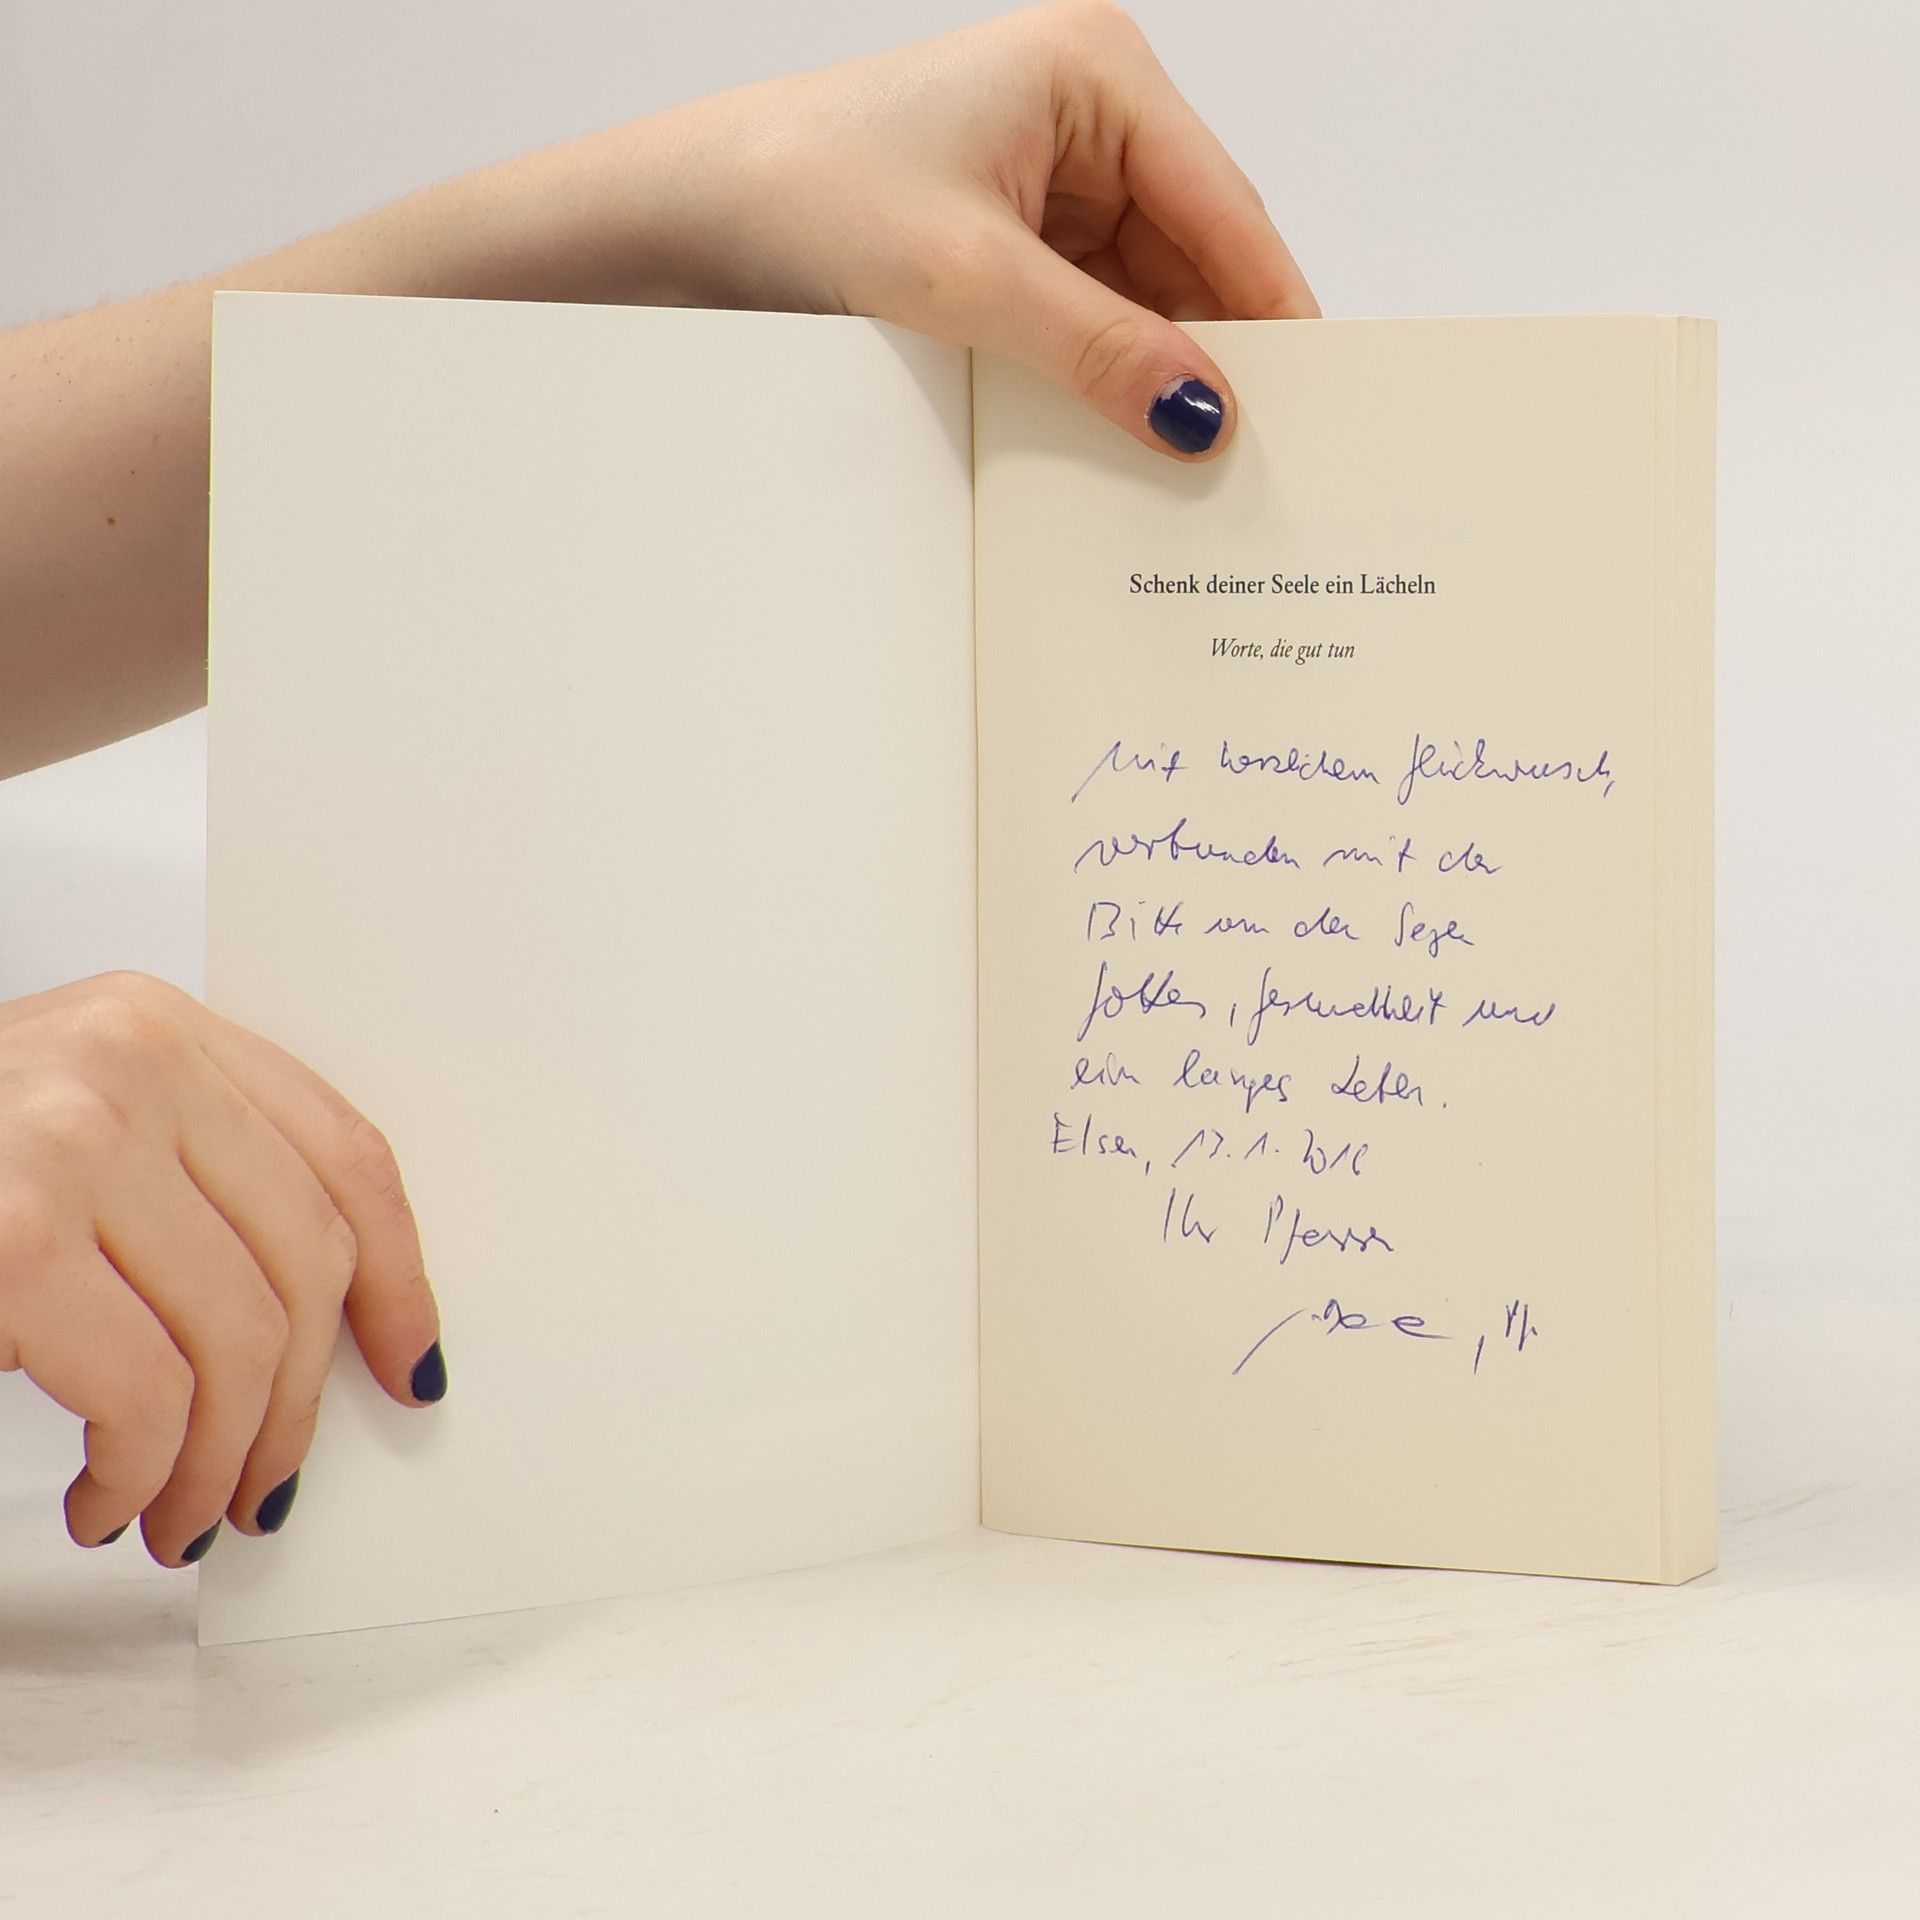 Schenk deiner Seele ein Lächeln
Worte, die gut tun
Mit herzlichem Glückwunsch,
verbunden mit der
Bitte um den Segen
Gottes, Gesundheit und
ein langes Leben.
Elsen, 13.1.2016
Ihr Pfarrer